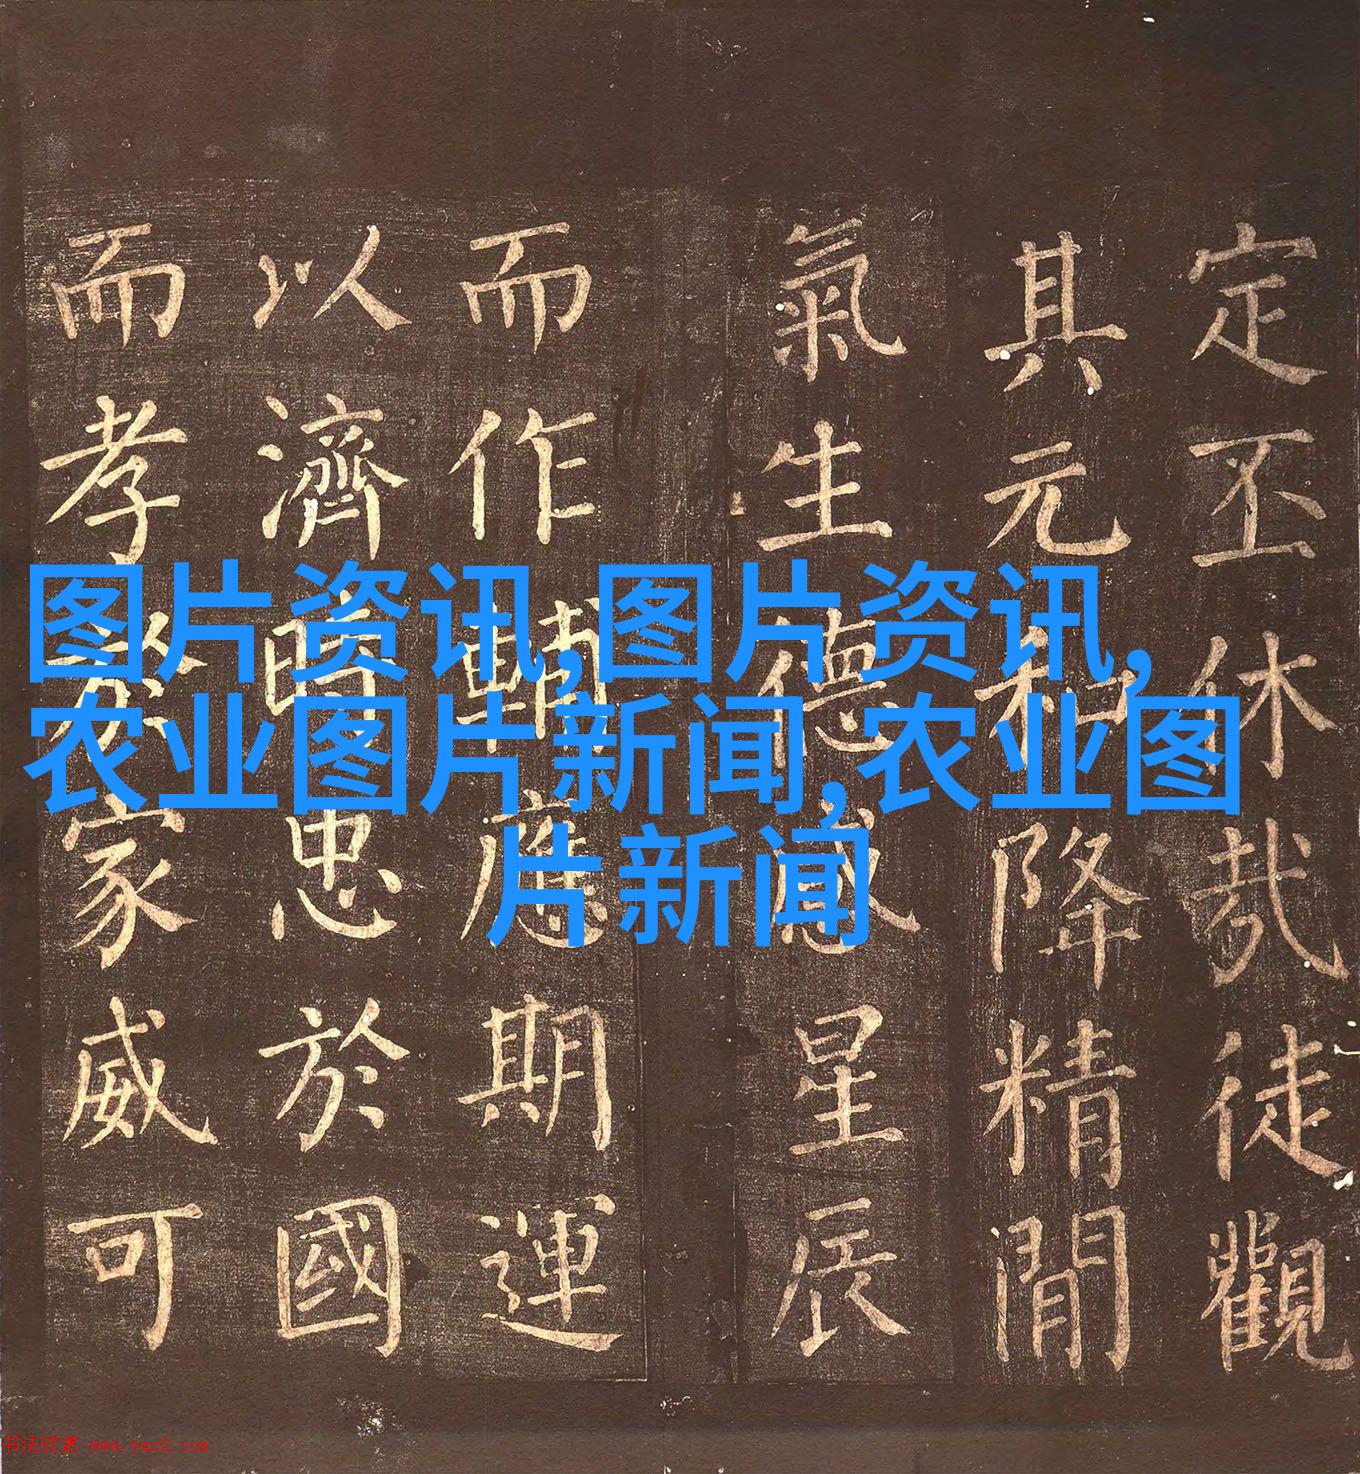 图片资讯,图片资讯,
农业图片新闻,农业图
片新闻
定丕休哉徒觀
其元和降精閒
氣生德感星辰
而作輔應期運
以濟時忠於國
而孝於家威可
书法欣赏 www.yac8.com